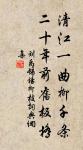 清江一曲柳千条
二十年前旧板桥
刘禹锡杨柳枝词典僩
集